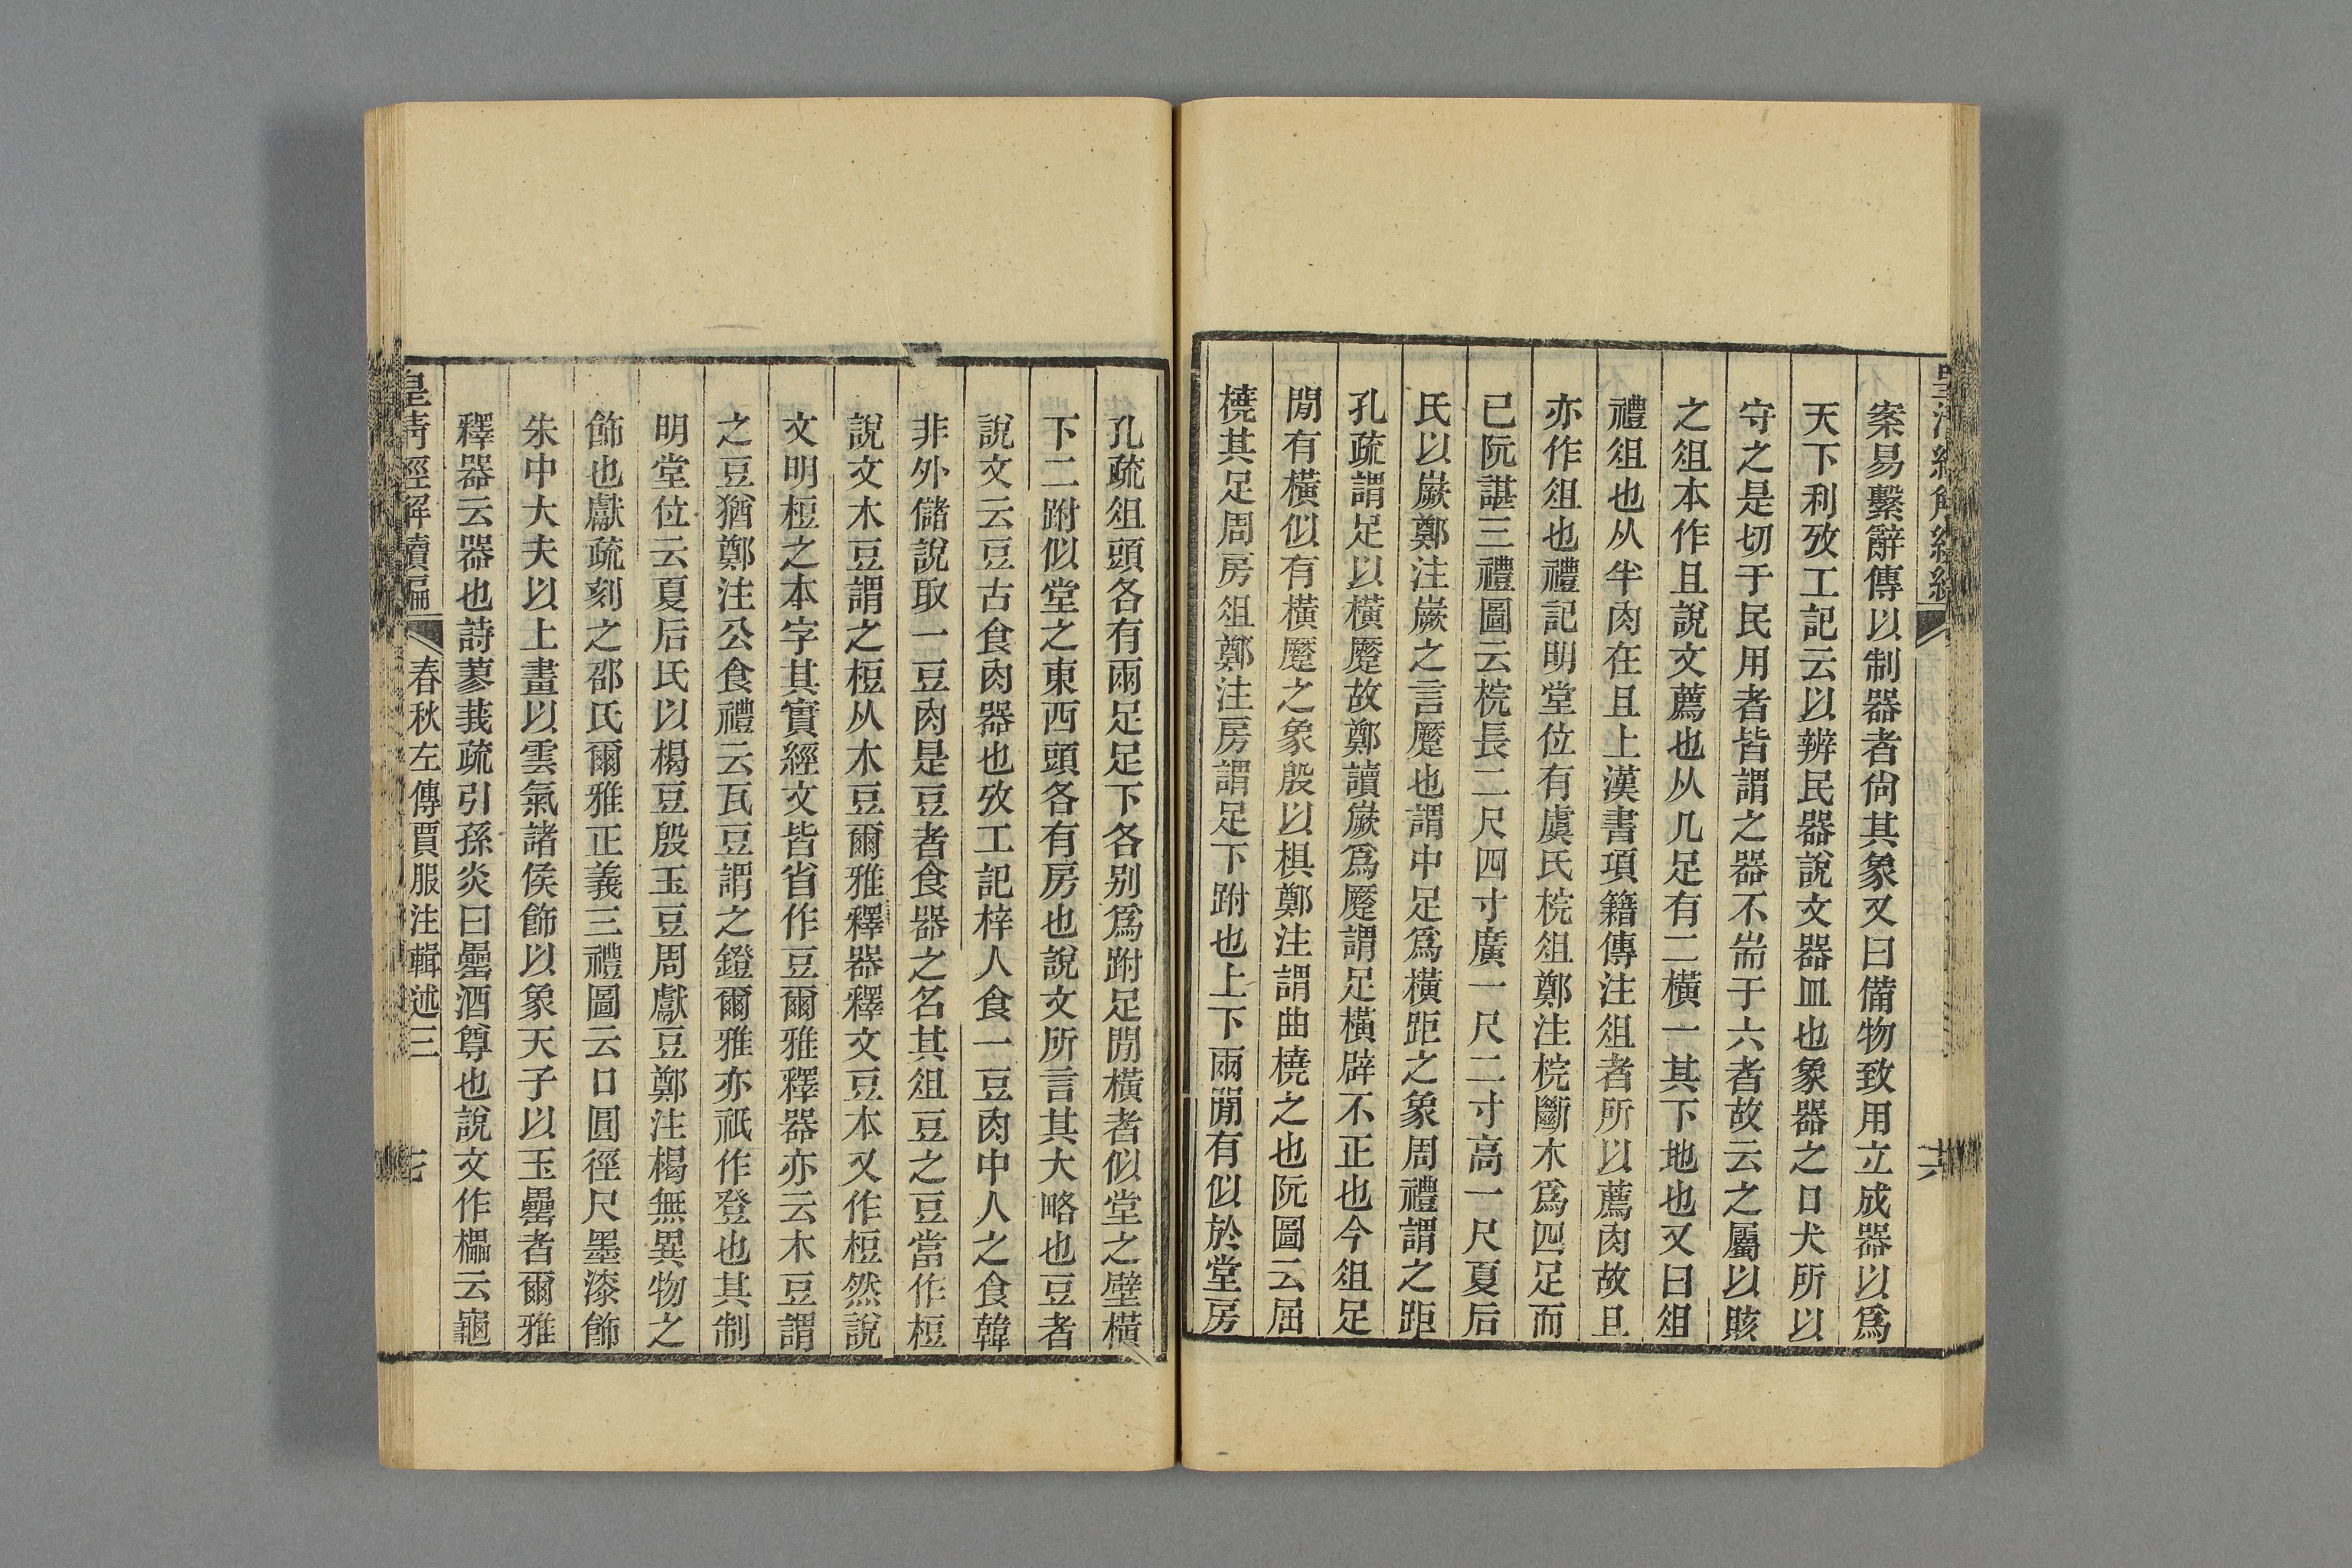 案易繫辭傳以制器者尙其象又曰備物致用立成器以爲
天下利攷工記云以辨民器說文器皿也象器之口犬所以
守之是切于民用者皆謂之器不耑于六者故云之屬以賅
之俎本作且說文薦也从几足有二橫一其下地也又曰俎
禮俎也从半肉在且上漢書項籍傳注俎者所以薦肉故且
亦作俎也禮記明堂位有虞氏梡俎鄭注梡斷木爲四足而
已阮諶三禮圖云梡長二尺四寸廣一尺二寸高一尺夏后
氏以嶡鄭注嶡之言蹷也謂中足爲橫距之象周禮謂之距
孔疏謂足以橫蹷故鄭讀嶡爲蹷謂足橫辟不正也今俎足
閒有橫似有橫蹷之象殷以椇鄭注謂曲橈之也阮圖云屈
橈其足周房俎鄭注房謂足下跗也上下兩閒有似於堂房
孔疏俎頭各有兩足足下各別爲跗足閒橫者似堂之壁橫
下二跗似堂之東西頭各有房也說文所言其大略也豆者
說文云豆古食肉器也攷工記梓人食一豆肉中人之食韓
非外儲說取一豆肉是豆者食器之名其俎豆之豆當作梪
說文木豆謂之梪从木豆爾雅釋器釋文豆本又作梪然說
文明梪之本字其實經文皆省作豆爾雅釋器亦云木豆謂
之豆猶鄭注公食禮云瓦豆謂之鐙爾雅亦祇作登也其制
明堂位云夏后氏以楬豆殷玉豆周獻豆鄭注楬無異物之
飾也獻疏刻之邵氏爾雅正義三禮圖云口圓徑尺墨漆飾
朱中大夫以上畫以雲氣諸侯飾以象天子以玉罍者爾雅
釋器云器也詩蓼莪疏引孫炎曰罍酒尊也說文作櫑云龜
皇淸經解續編
春秋左傳賈服注輯述三